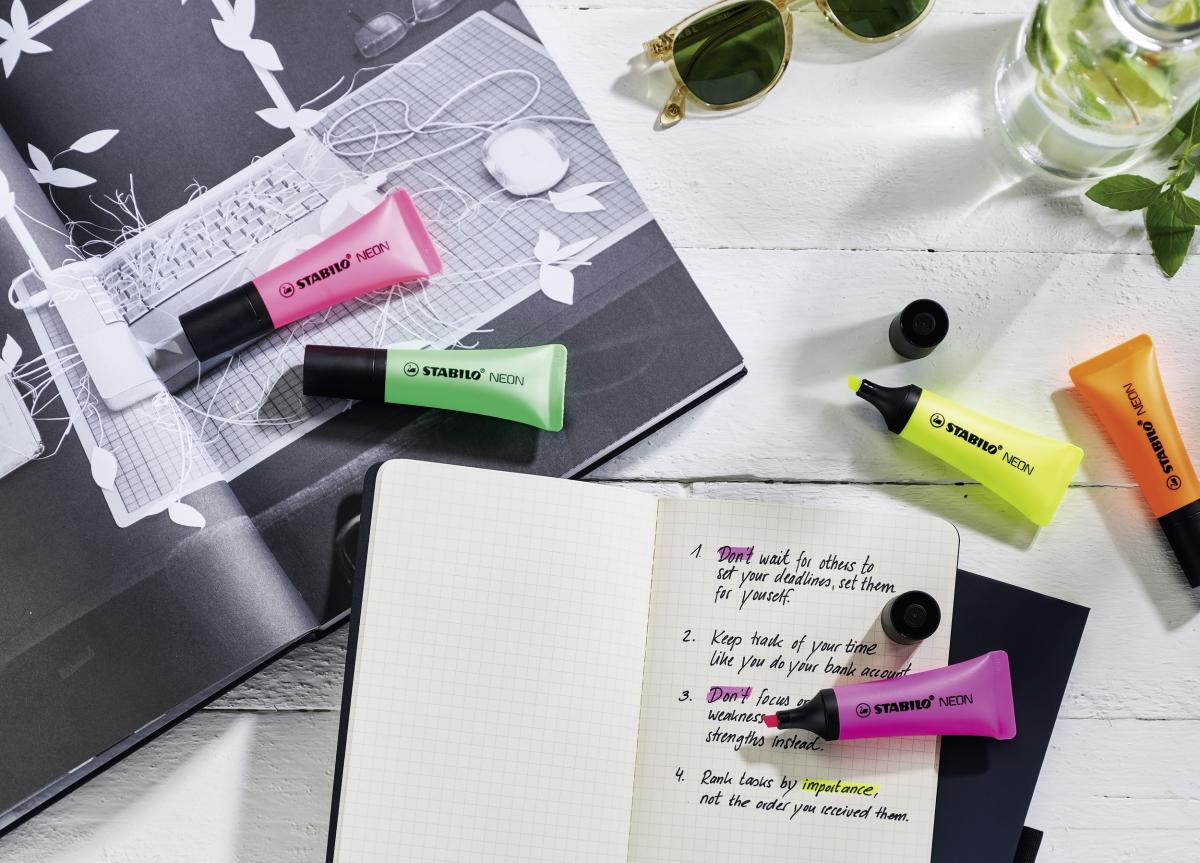 STABILO® NEON
STABILO® NEON
STABILO® NEON
STABILO® NEON
1. Don't wait for others to
set your deadlines, set them
for youself.
2. Keep track of your time
like you do your bank account
3. Don't focus
weakness
strengths instead.
STABILO® NEON
4. Rank tasks by importance,
not the order you received them.